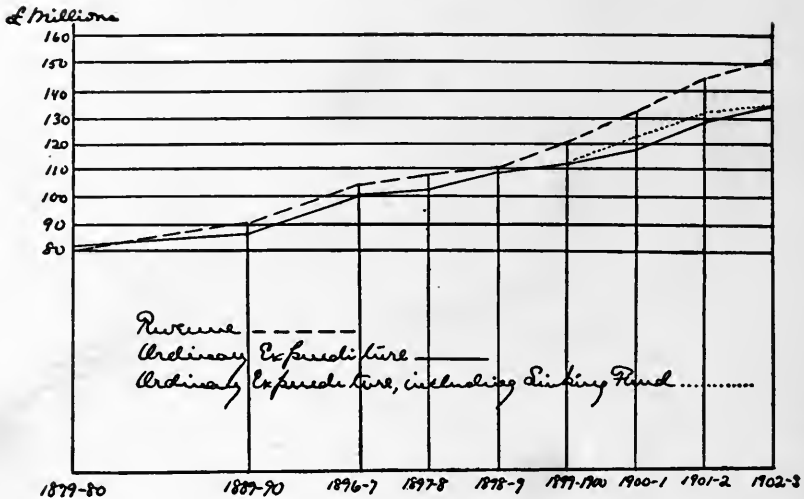 £ Millions
160
150
140
130
120
110
100
90
80
Revenue
Ordinary Expenditure
Ordinary Expenditure, including Sinking Fund
1879-80 1889-90 1896-7 1897-8 1898-9 1899-1900 1900-1 1901-2 1902-3